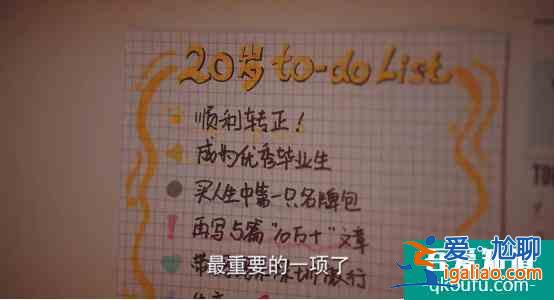 20岁 to-do List
顺利转正！
成为优秀毕业生
买人生中第一只名牌包
再写5篇“10万+”文章
带
旅行
最重要的一项了
TO
爱·尬聊
igaliao.com
qk8ufu.com